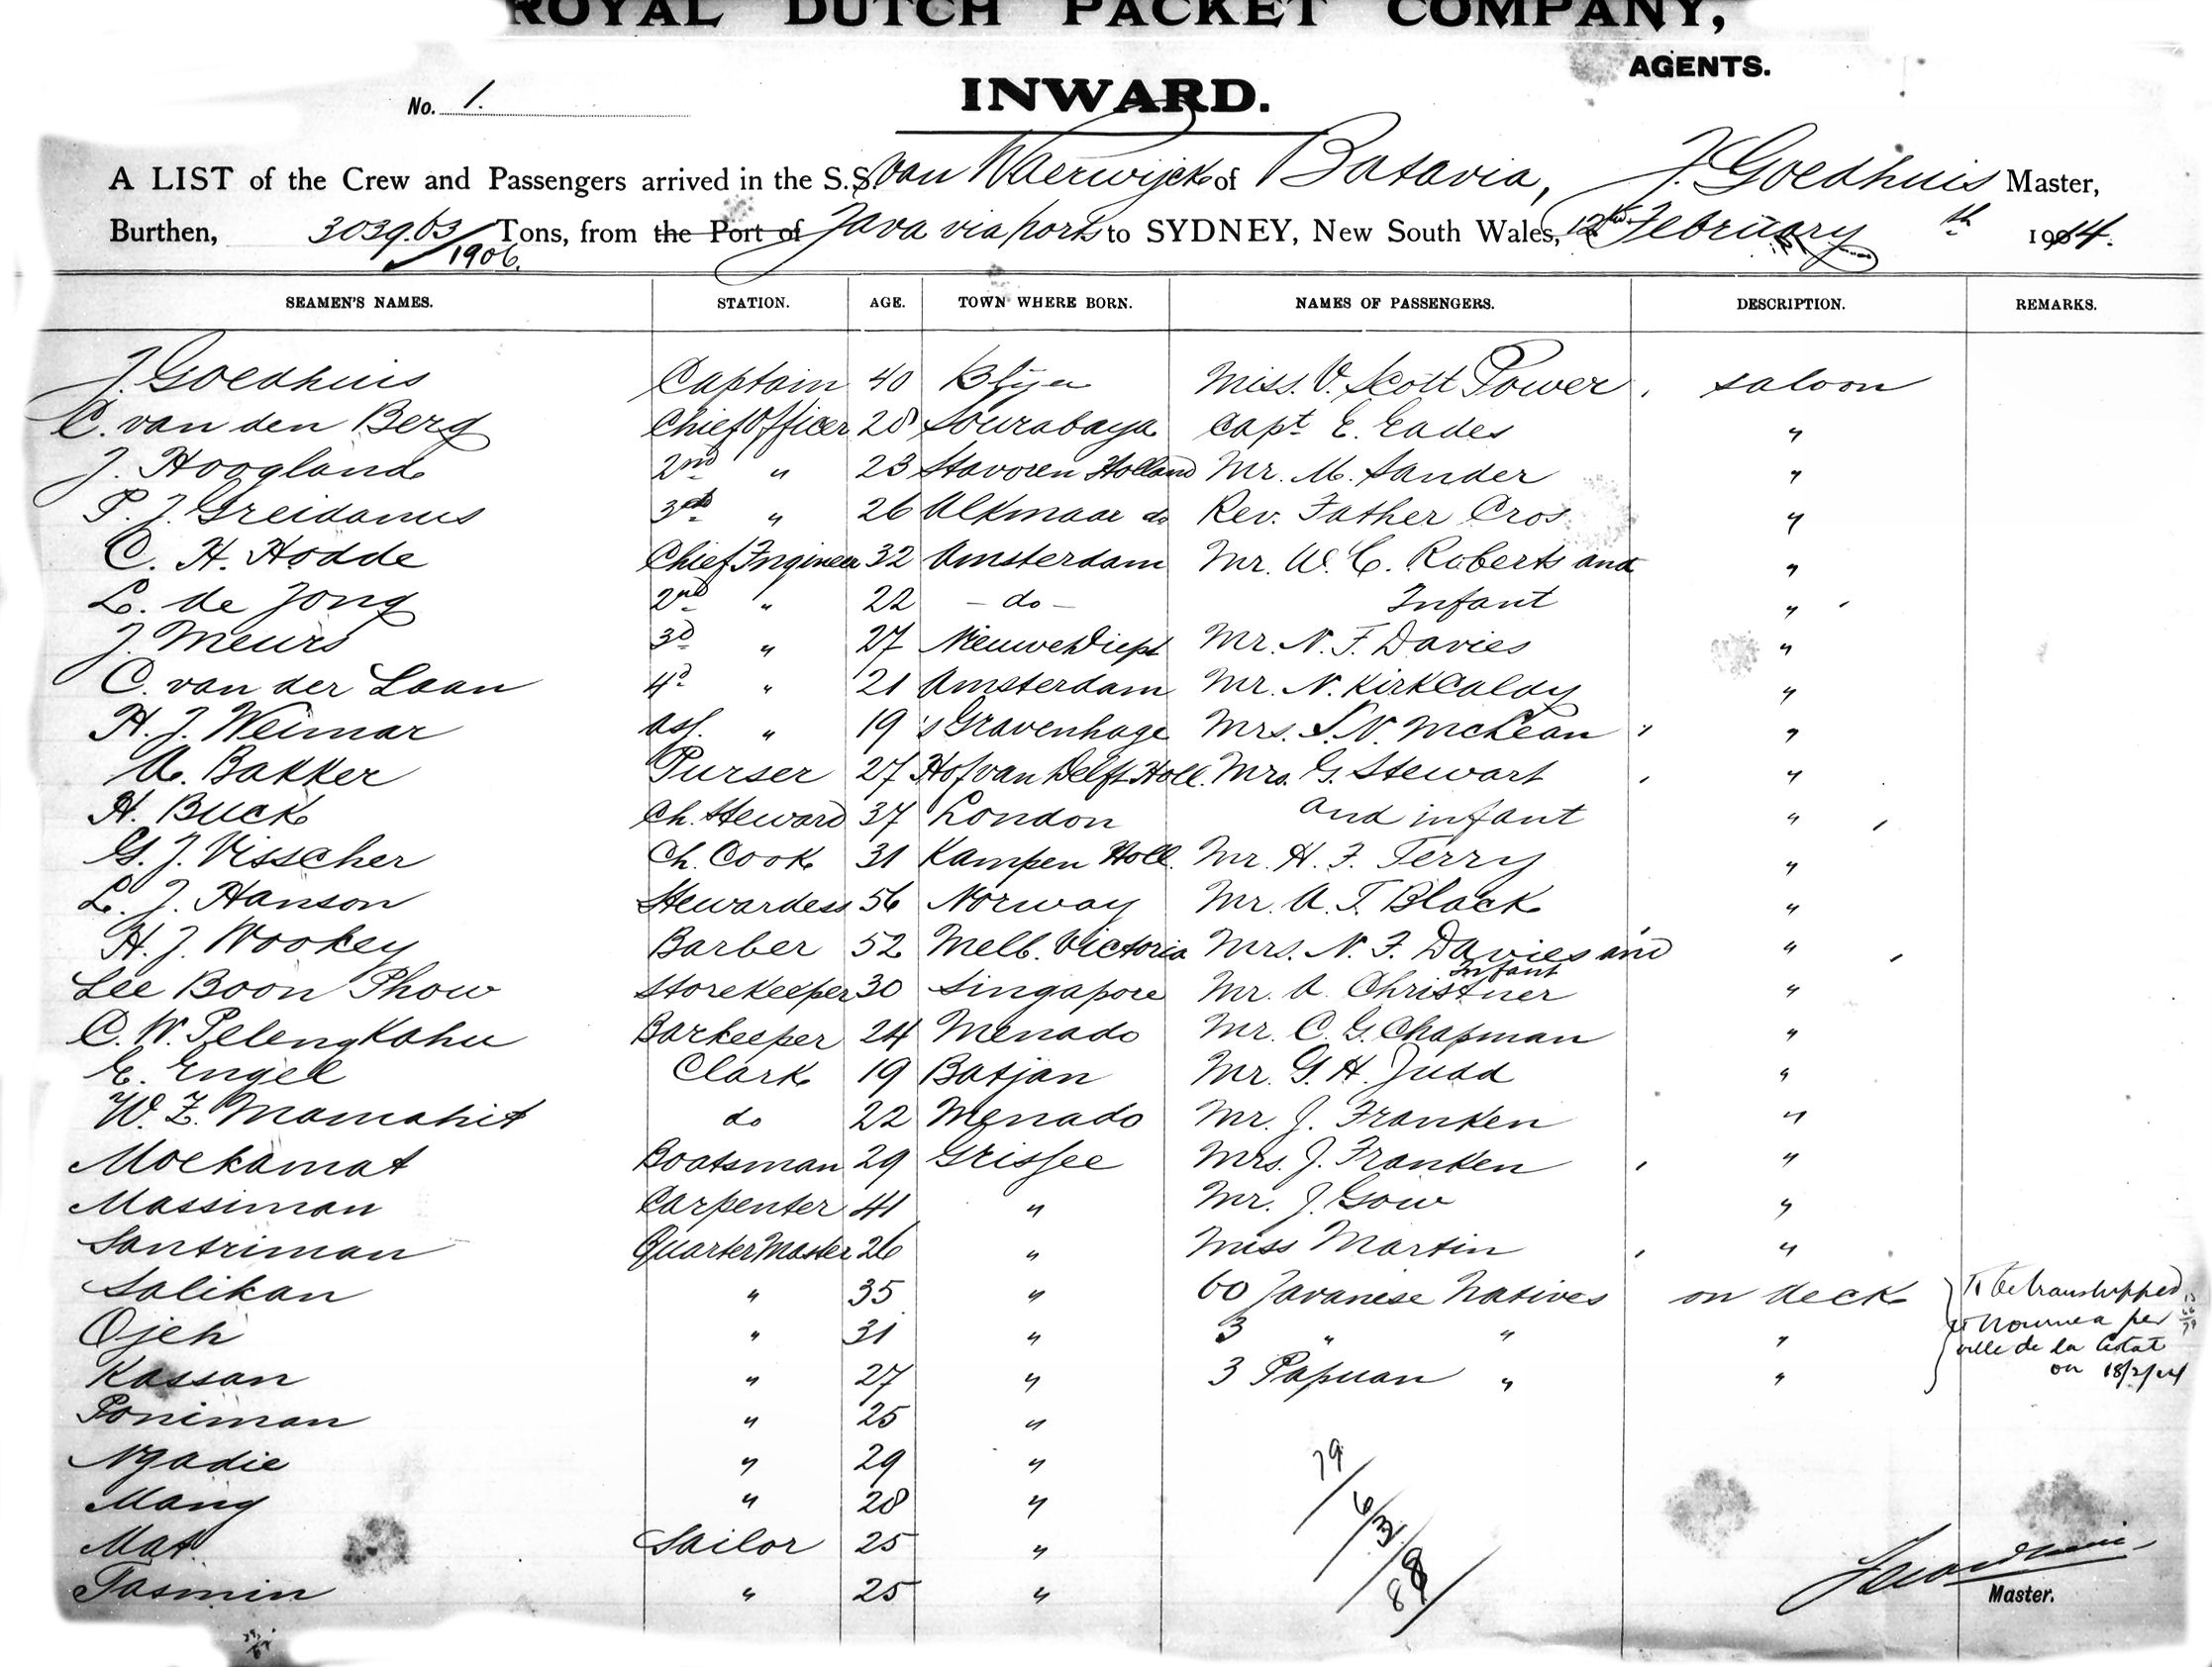 ROYAL DUTCH PACKET COMPANY,
AGENTS.
No. 1.
INWARD.
A LIST of the Crew and Passengers arrived in the S.S. van Waerwijck of Batavia, J. Goedhuis Master,
Burthen, 3039.63/1906. Tons, from the Port of Java via ports to SYDNEY, New South Wales, 12th February th 1914.
SEAMEN'S NAMES. STATION. AGE. TOWN WHERE BORN. NAMES OF PASSENGERS. DESCRIPTION. REMARKS.
J. Goedhuis Captain 40 Miss. V. Scott Power saloon
C. van den Berg Chief Officer 28 Sourabaya Capt E. Eades "
J. Hoogland 2nd " 23 Stavoren Holland Mr. M. Sander "
P. J. Greidanus 3rd " 26 Alkmaar do Rev. Father Cros "
C. H. Hodde Chief Engineer 32 Amsterdam Mr. W. C. Roberts and "
L. de Jong 2nd " 22 - do - Infant "
J. Meurs 3d " 27 Nieuwe Diept Mr. N. F. Davies "
C. van der Laan 4d " 21 Amsterdam Mr. N. Kirkcaldy "
H. J. Weimar ass. " 19 's Gravenhage Mrs. S. N. McLean "
A. Bakker Purser 27 Hof van Delft Holl. Mrs. G. Stewart "
H. Buck Ch. Steward 37 London and infant "
G. J. Visscher Ch. Cook 31 Kampen Holl. Mr. H. F. Terry "
L. J. Hanson Stewardess 56 Norway Mr. A. T. Black "
H. J. Wookey Barber 52 Melb. Victoria Mrs. N. F. Davies and "
Infant
Lee Boon Phow Storekeeper 30 Singapore Mr. A. Christner "
C. W. Pelengkahu Barkeeper 24 Menado Mr. C. G. Chapman "
E. Engel Clark 19 Batjan Mr. G. H. Judd "
W. Z. Mamahit do 22 Menado Mr. J. Franken "
Moekamat Boatsman 29 Grissee Mrs. J. Franken "
Massiman Carpenter 41 " Mr. J. Gow "
Santriman Quarter Master 26 " Miss Martin "
Salikan " 35 " 60 Javanese Natives on deck To be transhipped
Ojeh " 31 " 3 " " " to Noumea per
ville de la
Kassan " 27 " 3 Papuan " " on 18/2/14
Poniman " 25 "
Ngadie " 29 "
Mang " 28 "
Mat. Sailor 25 "
Tasmin " 25 "
79/6/3/88
Master.